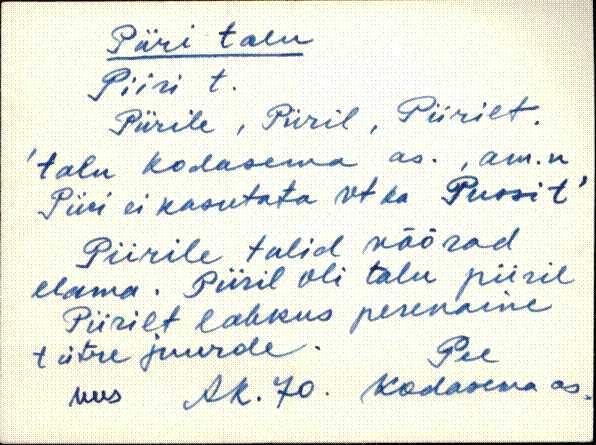 Piiri talu
Piiri t.
Piirile, Piiril, Piirilt.
'talu Kodasema as., am.n
Piiri ei kasutata vt ka Pussi t'
Piirile tulid võõrad
elama. Piiril oli talu piiril
Piirilt lahkus perenaine
tütre juurde.
Pee
uus AK. 70. Kodasema as.